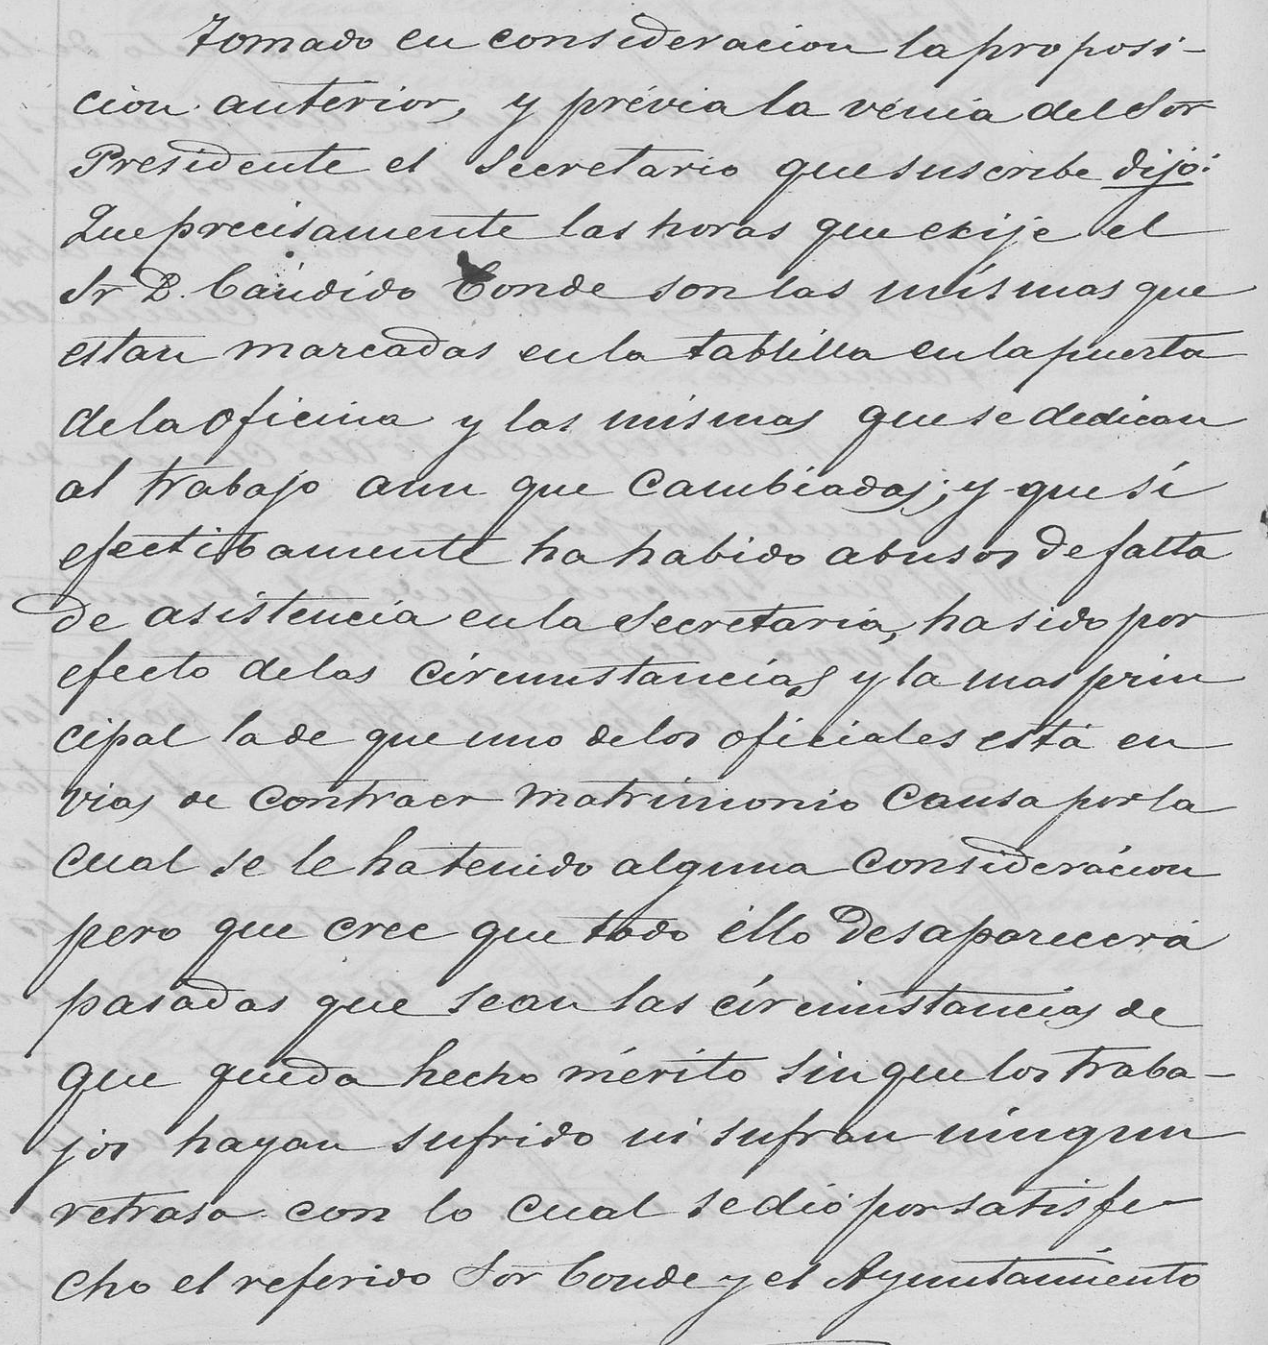 Tomado en consideracion la proposi-
cion anterior, y prévia la vénia del Sor
Presidente el Secretario que suscribe dijo:
Que precisamente las horas que exije el
Sr D. Cándido Conde son las mismas que
estan marcadas en la tablilla en la puerta
de la oficina y las mismas que se dedican
al trabajo aun que cambiadas; y que si
efectibamente ha habido abusos de falta
de asistencia en la Secretaria, ha sido por
efecto de las circunstancias y la mas prin
cipal la de que uno de los oficiales está en
vias de contraer matrimonio causa por la
cual se le ha tenido alguna consideracion
pero que cree que todo ello desaparecerá
pasadas que sean las circunstancias de
que queda hecho mérito sin que los traba-
jos hayan sufrido ni sufran ningun
retraso con lo cual se dió por satisfe-
cho el referido Sor Conde y el Ayuntamiento